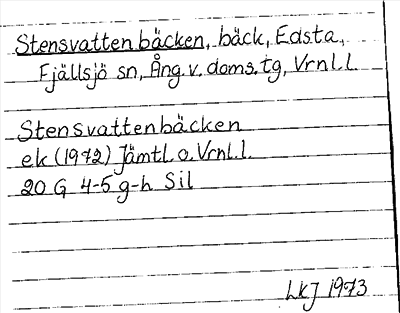 Stensvattenbäcken, bäck, Edsta,
Fjällsjö sn, Ång. v. doms.tg, Vrnl.l.
Stensvattenbäcken
ek (1972) Jämtl. o. Vrnl.l.
20 G 4-5 g-h Sil
LKJ 1973